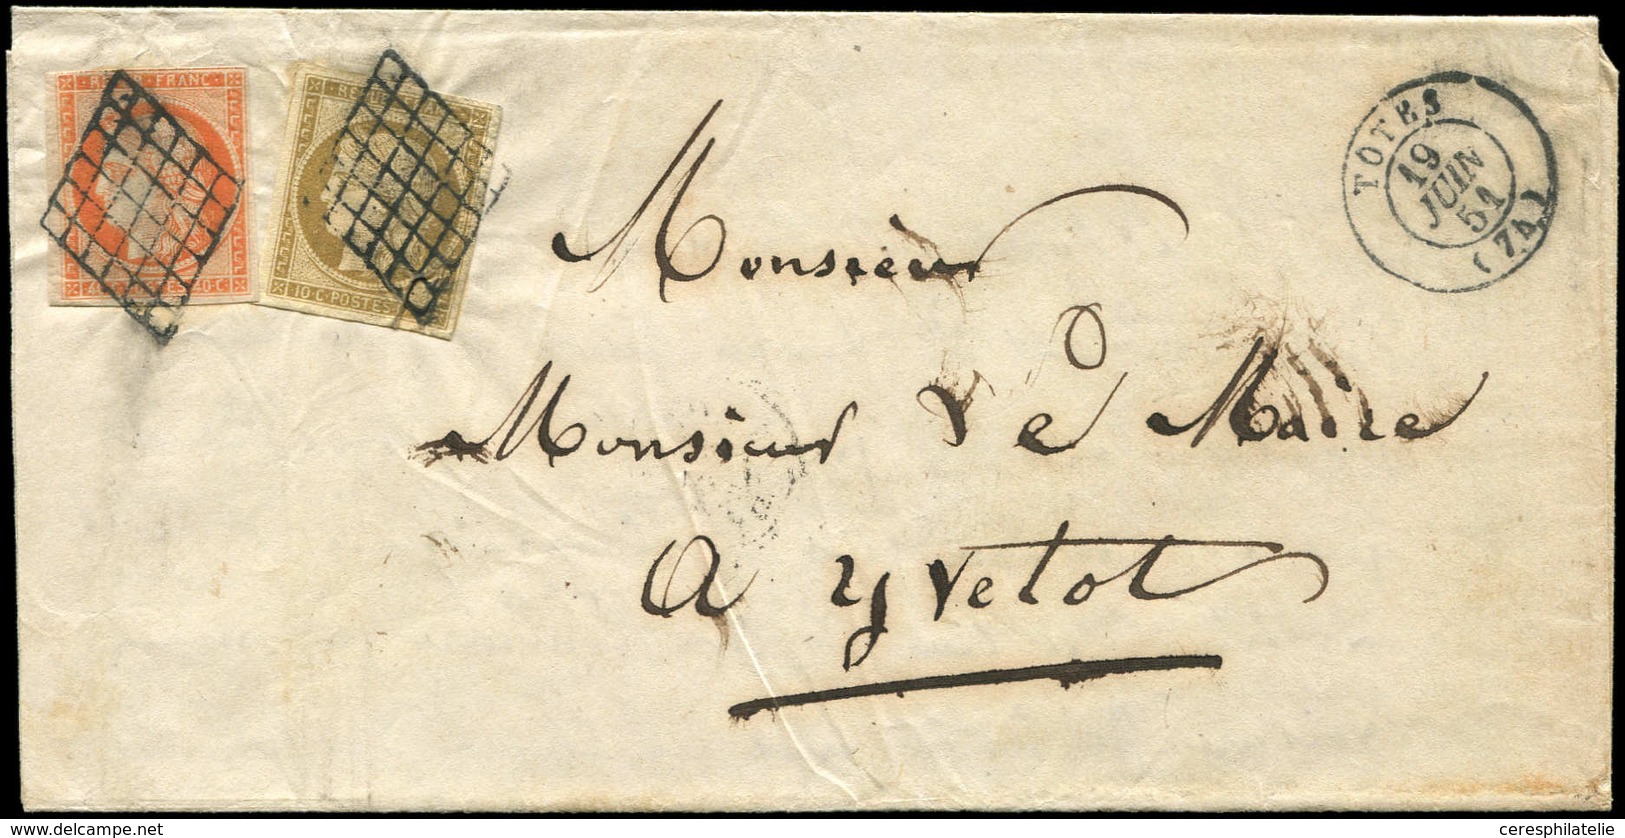 FRANC
10 · C · POSTES
TOTES
19
JUIN
51
(74)
Monsieur
Monsieur Le Maire
A yvetot
www.delcampe.net
ceresphilatelie